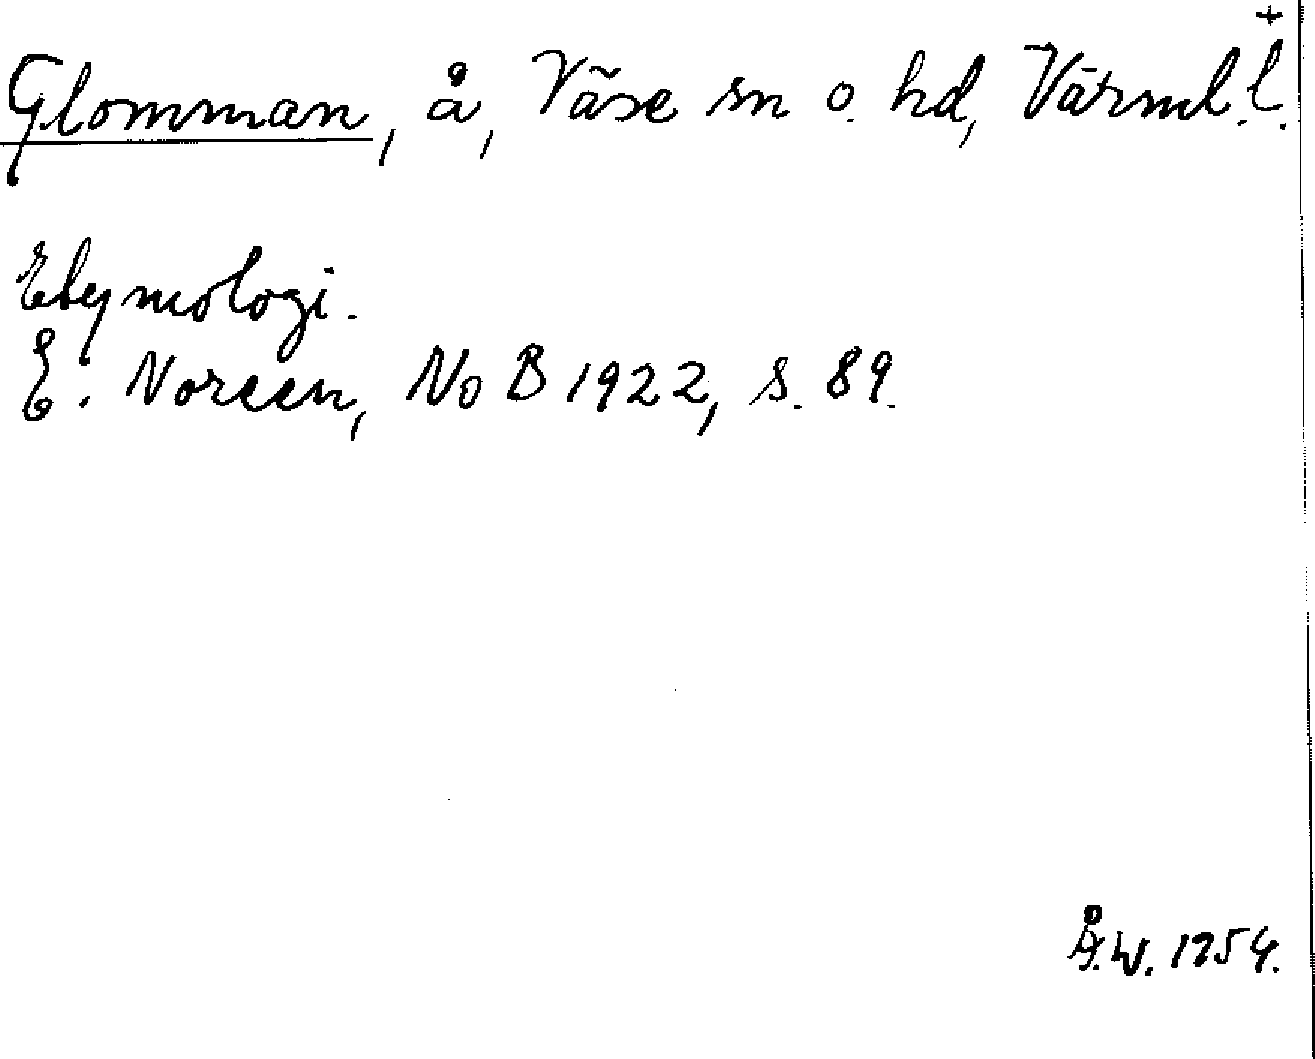 +
Glomman, å, Väse sn o. hd, Värml. l.
Etymologi.
E. Noreen, NoB 1922, s. 89.
Å.W. 1954.